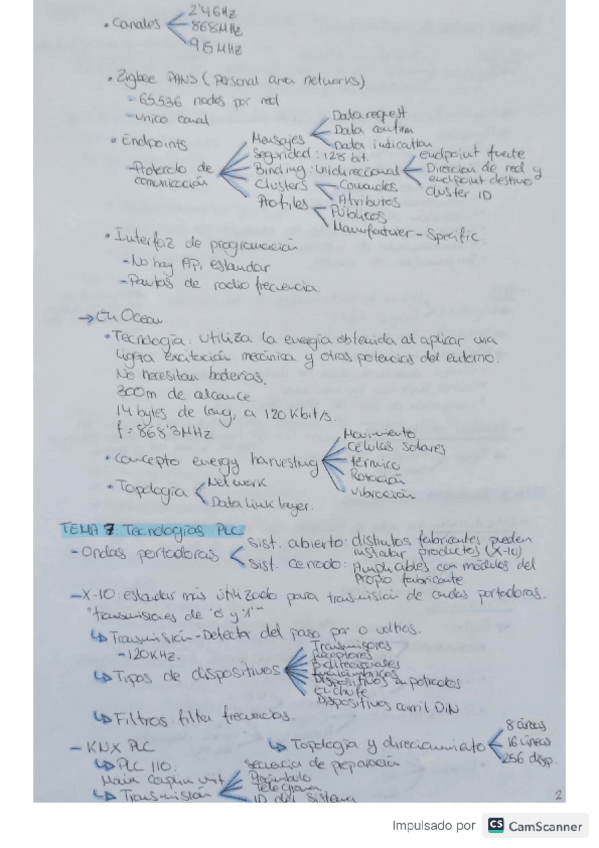 • Canales
2'4GHz
868MHz
915MHz
• Zigbee PANS (personal area networks)
- 65536 nodos por red
- único canal
• Endpoints
- Protocolo de comunicación
Mensajes
Data request
Data confirm
Data indication
Seguridad: 128 bit.
Binding: Unidireccional
endpoint fuente
Dirección de red y
endpoint destino
cluster ID
Clusters
Comandos
Atributos
Profiles
Públicos
Manufacturer - Specific
• Interfaz de programación
- No hay API estandar
- Pautas de radio frecuencia.
→ En Ocean
• Tecnología: utiliza la energía obtenida al aplicar una
ligera excitación mecánica y otras potencias del entorno.
No necesitan baterías.
300m de alcance.
14 bytes de long, a 120 Kbit/s.
f = 868'3MHz
• Concepto energy harvesting
Movimiento
Células solares
térmico
Rotación
vibración
• Topología
Network
Data Link layer.
TEMA 7. Tecnologías PLC
- Ondas portadoras
Sist. abierto: distintos fabricantes pueden
instalar productos (X-10)
Sist. cerrado: Ampliables con módulos del
propio fabricante
- X-10: estandar más utilizado para trasmisión de ondas portadoras.
"transmisiones de '0' y '1'"
↳ Transmisión - Detector del paso por 0 voltios.
- 120KHz.
↳ Tipos de dispositivos
Transmisores
Receptores
Bidireccionales
Inalámbricos
Dispositivos empotrados
Enchufe
Dispositivos carril DIN
↳ Filtros filtra frecuencias.
- KNX PLC
↳ Topología y direccionamiento
8 áreas
16 líneas
256 disp.
↳ PLC 110.
Main Coupling unit
↳ Transmisión
Secuencia de preparación
Preámbulo
Telegrama
ID del Sistema
2
Impulsado por CS CamScanner